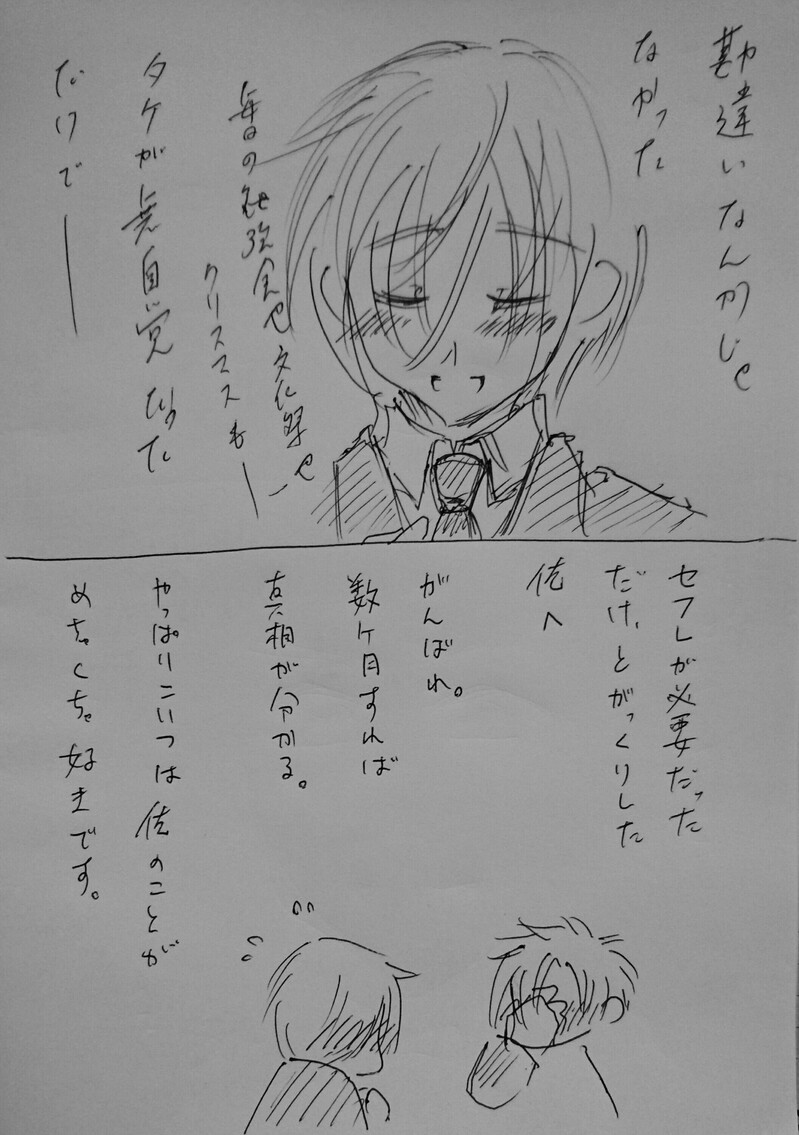 勘違いなんかじゃ
なかった
毎日の勉強会や文化祭や
クリスマスも―
タケが無自覚だった
だけで―
セフレが必要だった
だけ、とがっくりした
佐へ
がんばれ。
数ケ月すれば
真相が分かる。
やっぱりこいつは佐のことが
めちゃくちゃ好きです。